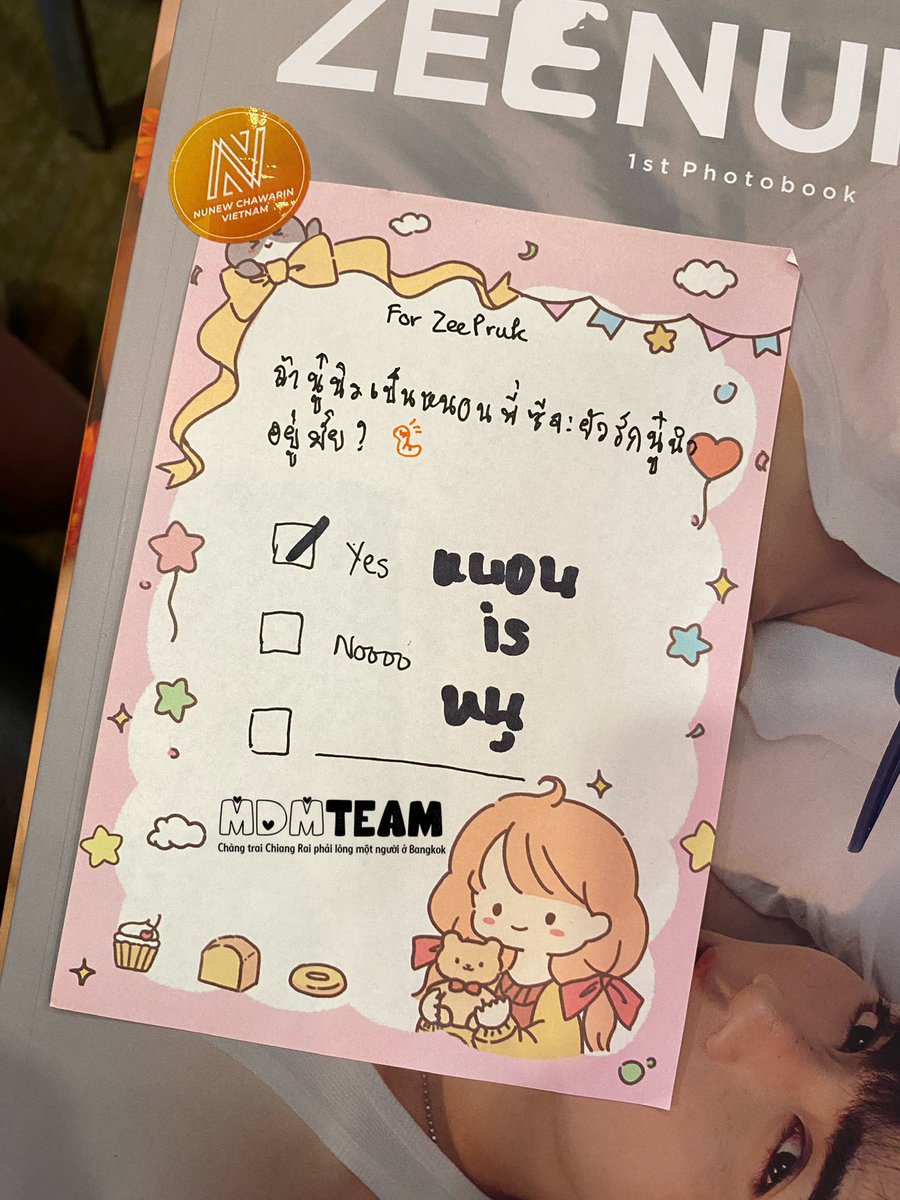 ZEENUN
1st Photobook
NUNEW CHAWARIN
VIETNAM
For ZeePruk
ถ้านู๋นิวเป็นหนอนพี่ซีจะยังรักนู๋นิว
อยู่มั้ย?
Yes
หนอน
is
Noooo
หนู
MDMTEAM
Chàng trai Chiang Rai phải lòng một người ở Bangkok